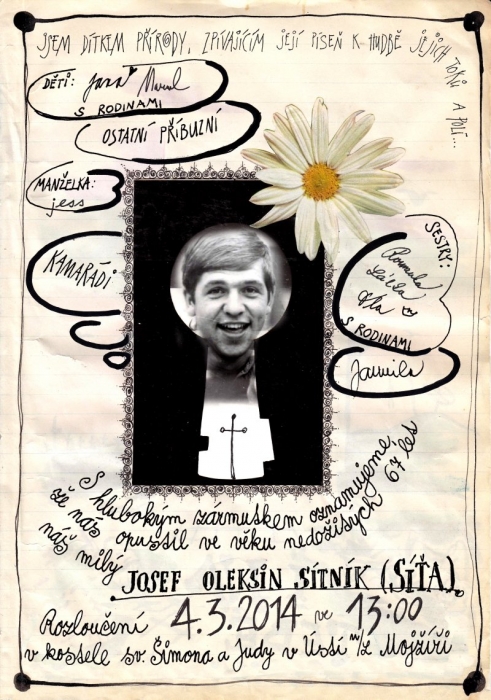 JSEM DÍTKEM PŘÍRODY, ZPÍVAJÍCÍM JEJÍ PÍSEŇ K HUDBĚ JEJÍCH TOKŮ A POLÍ...
DĚTI: Jara Marcel
S RODINAMI
OSTATNÍ PŘÍBUZNÍ
MANŽELKA:
jess
KAMARÁDI
SESTRY:
S RODINAMI
Jarmila
S hlubokým zármutkem oznamujeme,
že nás opustil ve věku nedožitých 67 let
náš milý
JOSEF OLEKSIN SÍTNÍK (SÍŤA).
Rozloučení 4.3.2014 ve 13:00
v kostele sv. Šimona a Judy v Ústí n/L Mojžíři